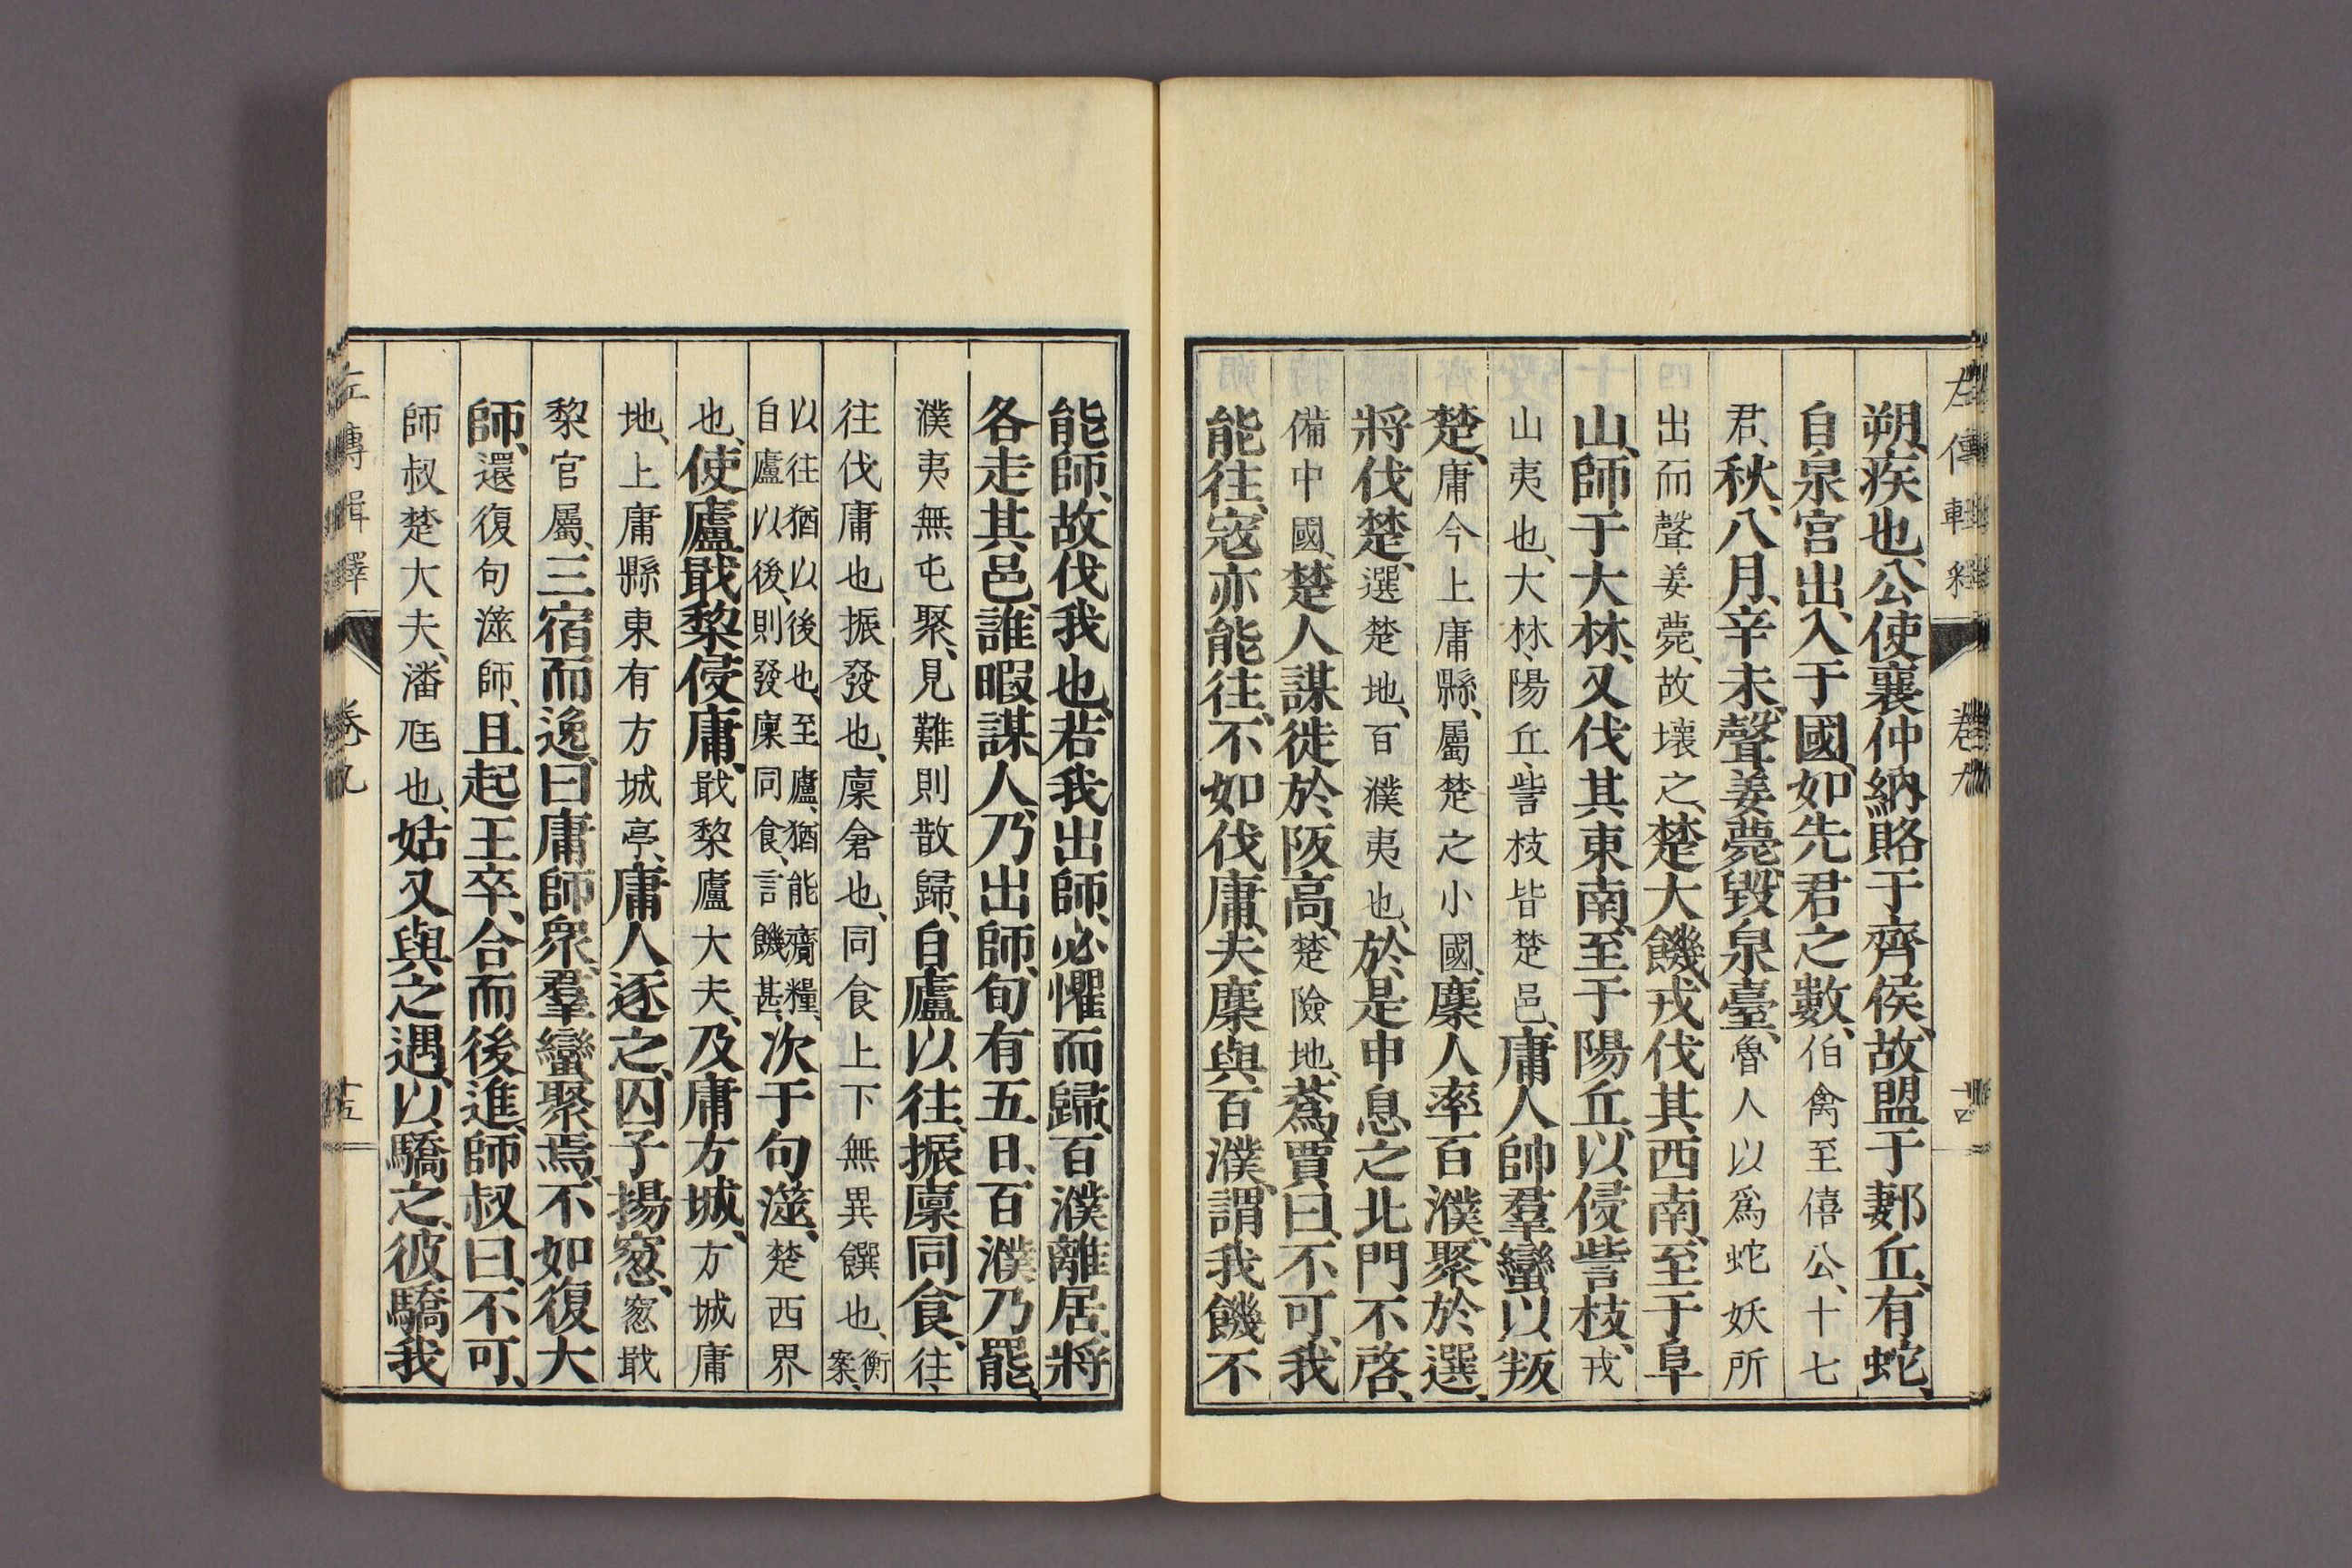 朔、疾也、公使襄仲納賂于齊侯、故盟于郪丘、有蛇、
自泉宮出、入于國、如先君之數、伯禽至僖公、十七
君、秋、八月、辛未、聲姜薨、毀泉臺、魯人以爲蛇妖所
出而聲姜薨、故壞之、楚大饑、戎伐其西南、至于阜
山、師于大林、又伐其東南、至于陽丘、以侵訾枝、戎
山夷也、大林、陽丘、訾枝皆楚邑、庸人帥羣蠻、以叛
楚、庸今上庸縣、屬楚之小國、麇人率百濮、聚於選、
將伐楚、選楚地、百濮夷也、於是申息之北門不啓、
備中國、楚人謀徙於阪高、楚險地、蒍賈曰、不可、我
能往、寇亦能往、不如伐庸、夫麇與百濮、謂我饑不
能師、故伐我也、若我出師、必懼而歸、百濮離居、將
各走其邑、誰暇謀人、乃出師、旬有五日、百濮乃罷、
濮夷無屯聚、見難則散歸、自廬以往、振廩同食、往、
往伐庸也、振發也、廩倉也、同食上下無異饌也、衡案、
以往猶以後也、至廬、猶能齎糧、
自廬以後、則發廩同食、言饑甚、次于句澨、楚西界
也、使廬戢黎侵庸、戢黎廬大夫、及庸方城、方城庸
地、上庸縣東有方城亭、庸人逐之、囚子揚窻、窻戢
黎官屬、三宿而逸、曰、庸師衆、羣蠻聚焉、不如復大
師、還復句澨師、且起王卒、合而後進、師叔曰、不可、
師叔楚大夫、潘尫也、姑又與之遇、以驕之、彼驕我
左傳輯釋 卷九 十四
左傳輯釋 卷九 十五